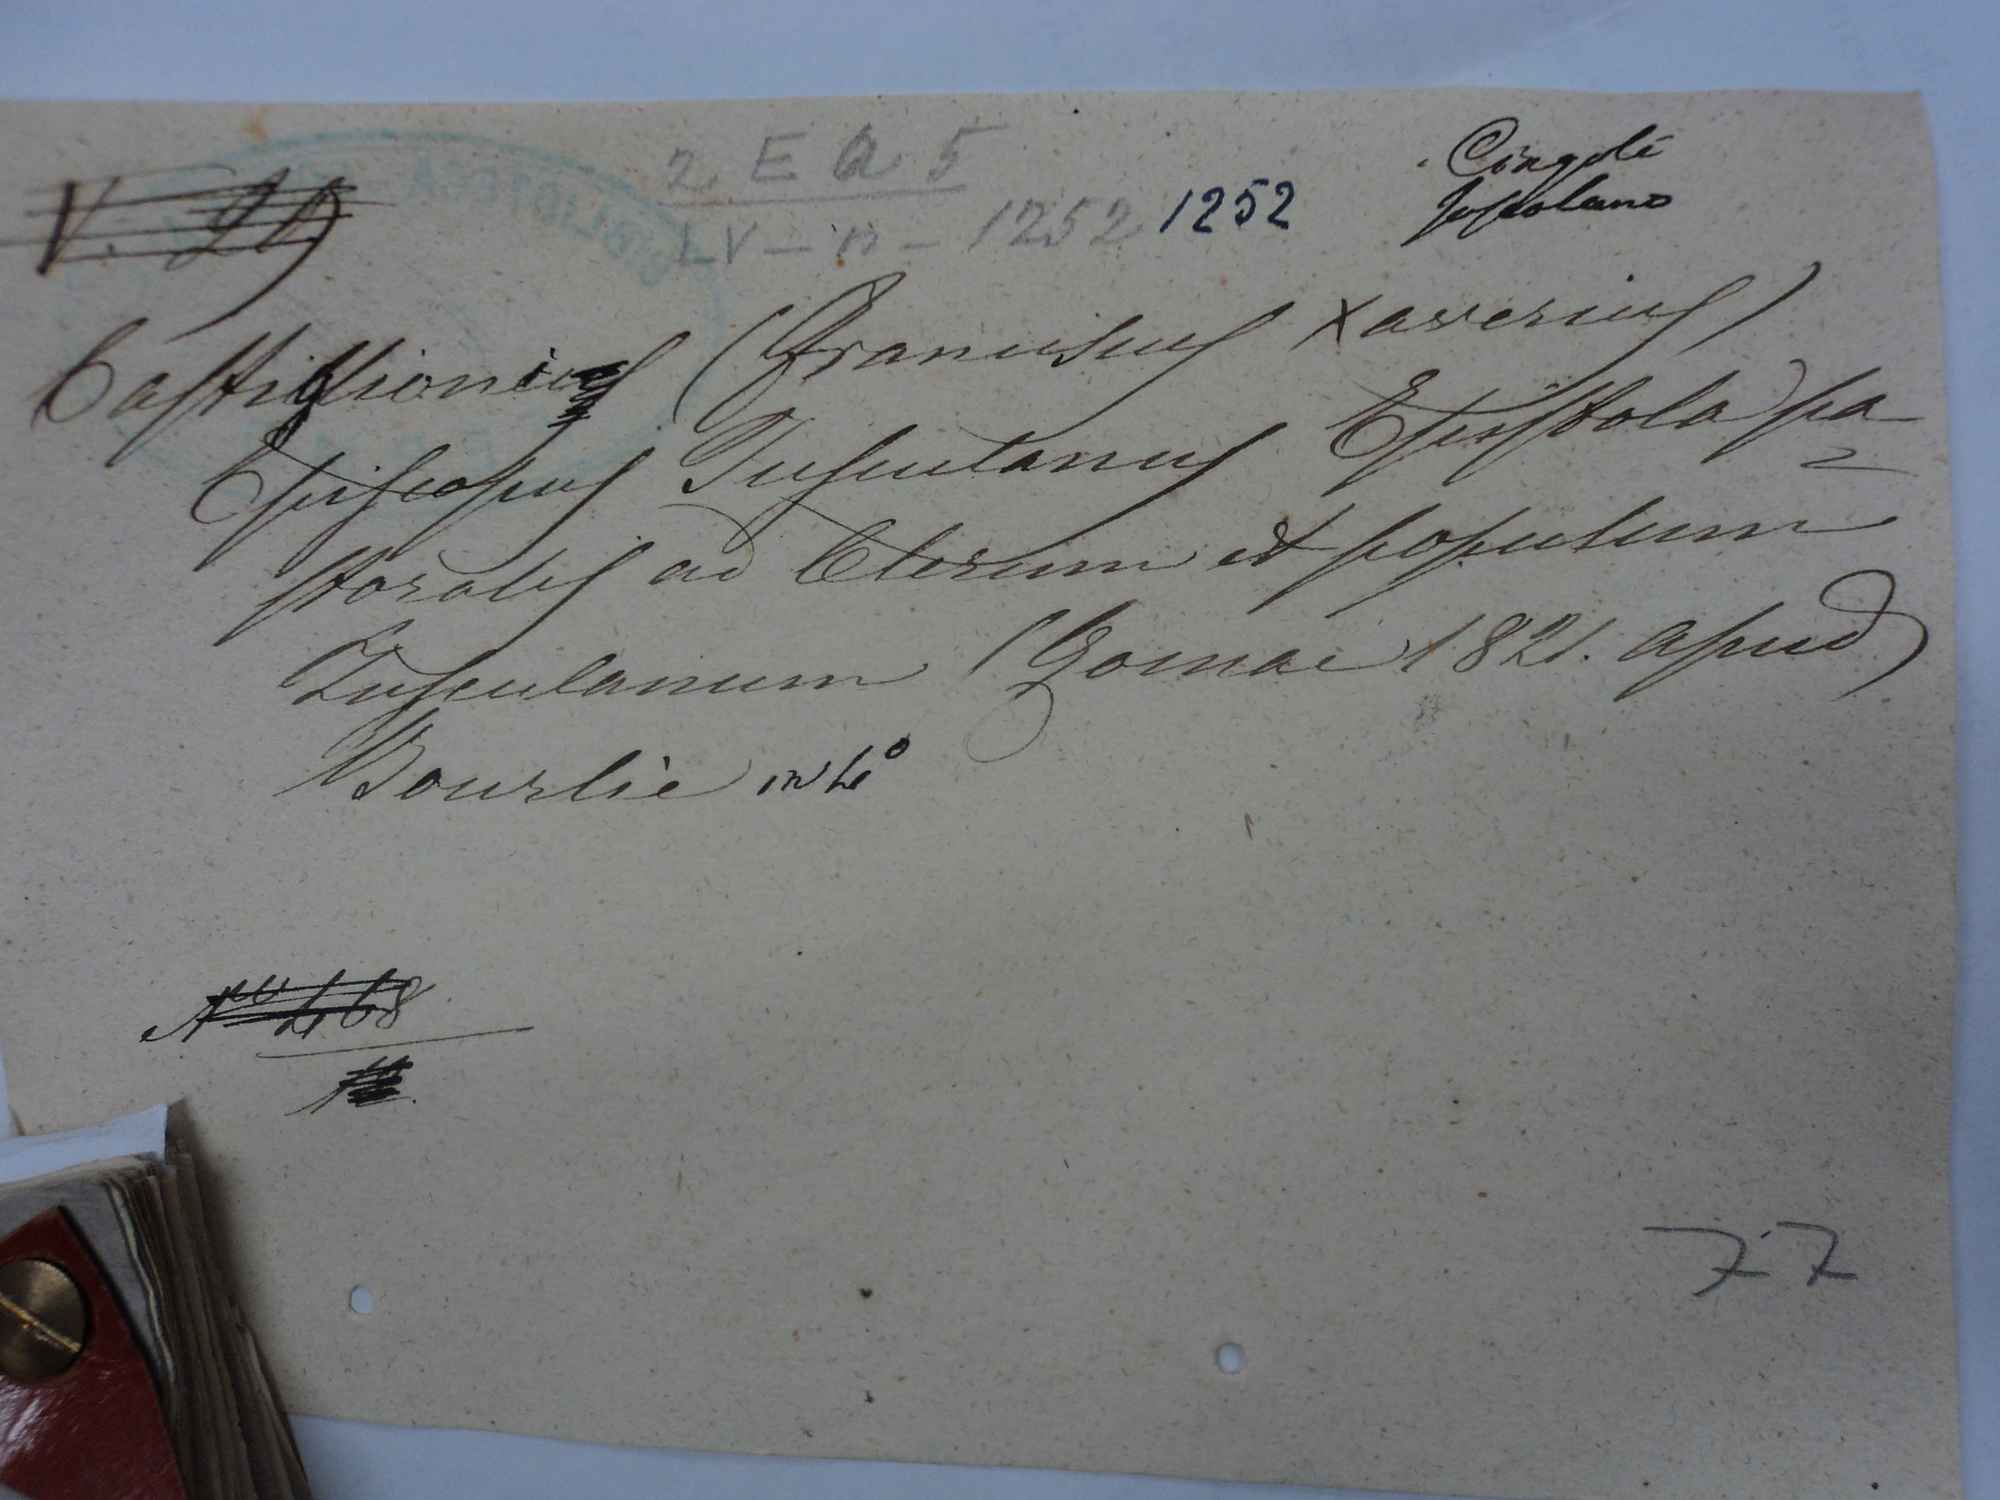 2 E a 5
V. 20
LV - n - 1252 1252
Cingoli
Tuscolano
Castillionius (Franciscus Xaverius)
Episcopus Tusculanus Epistola pa=
storalis ad Clerum et populum
Tusculanum (Romae 1821. apud
Bourliè in 4°
No 468
77